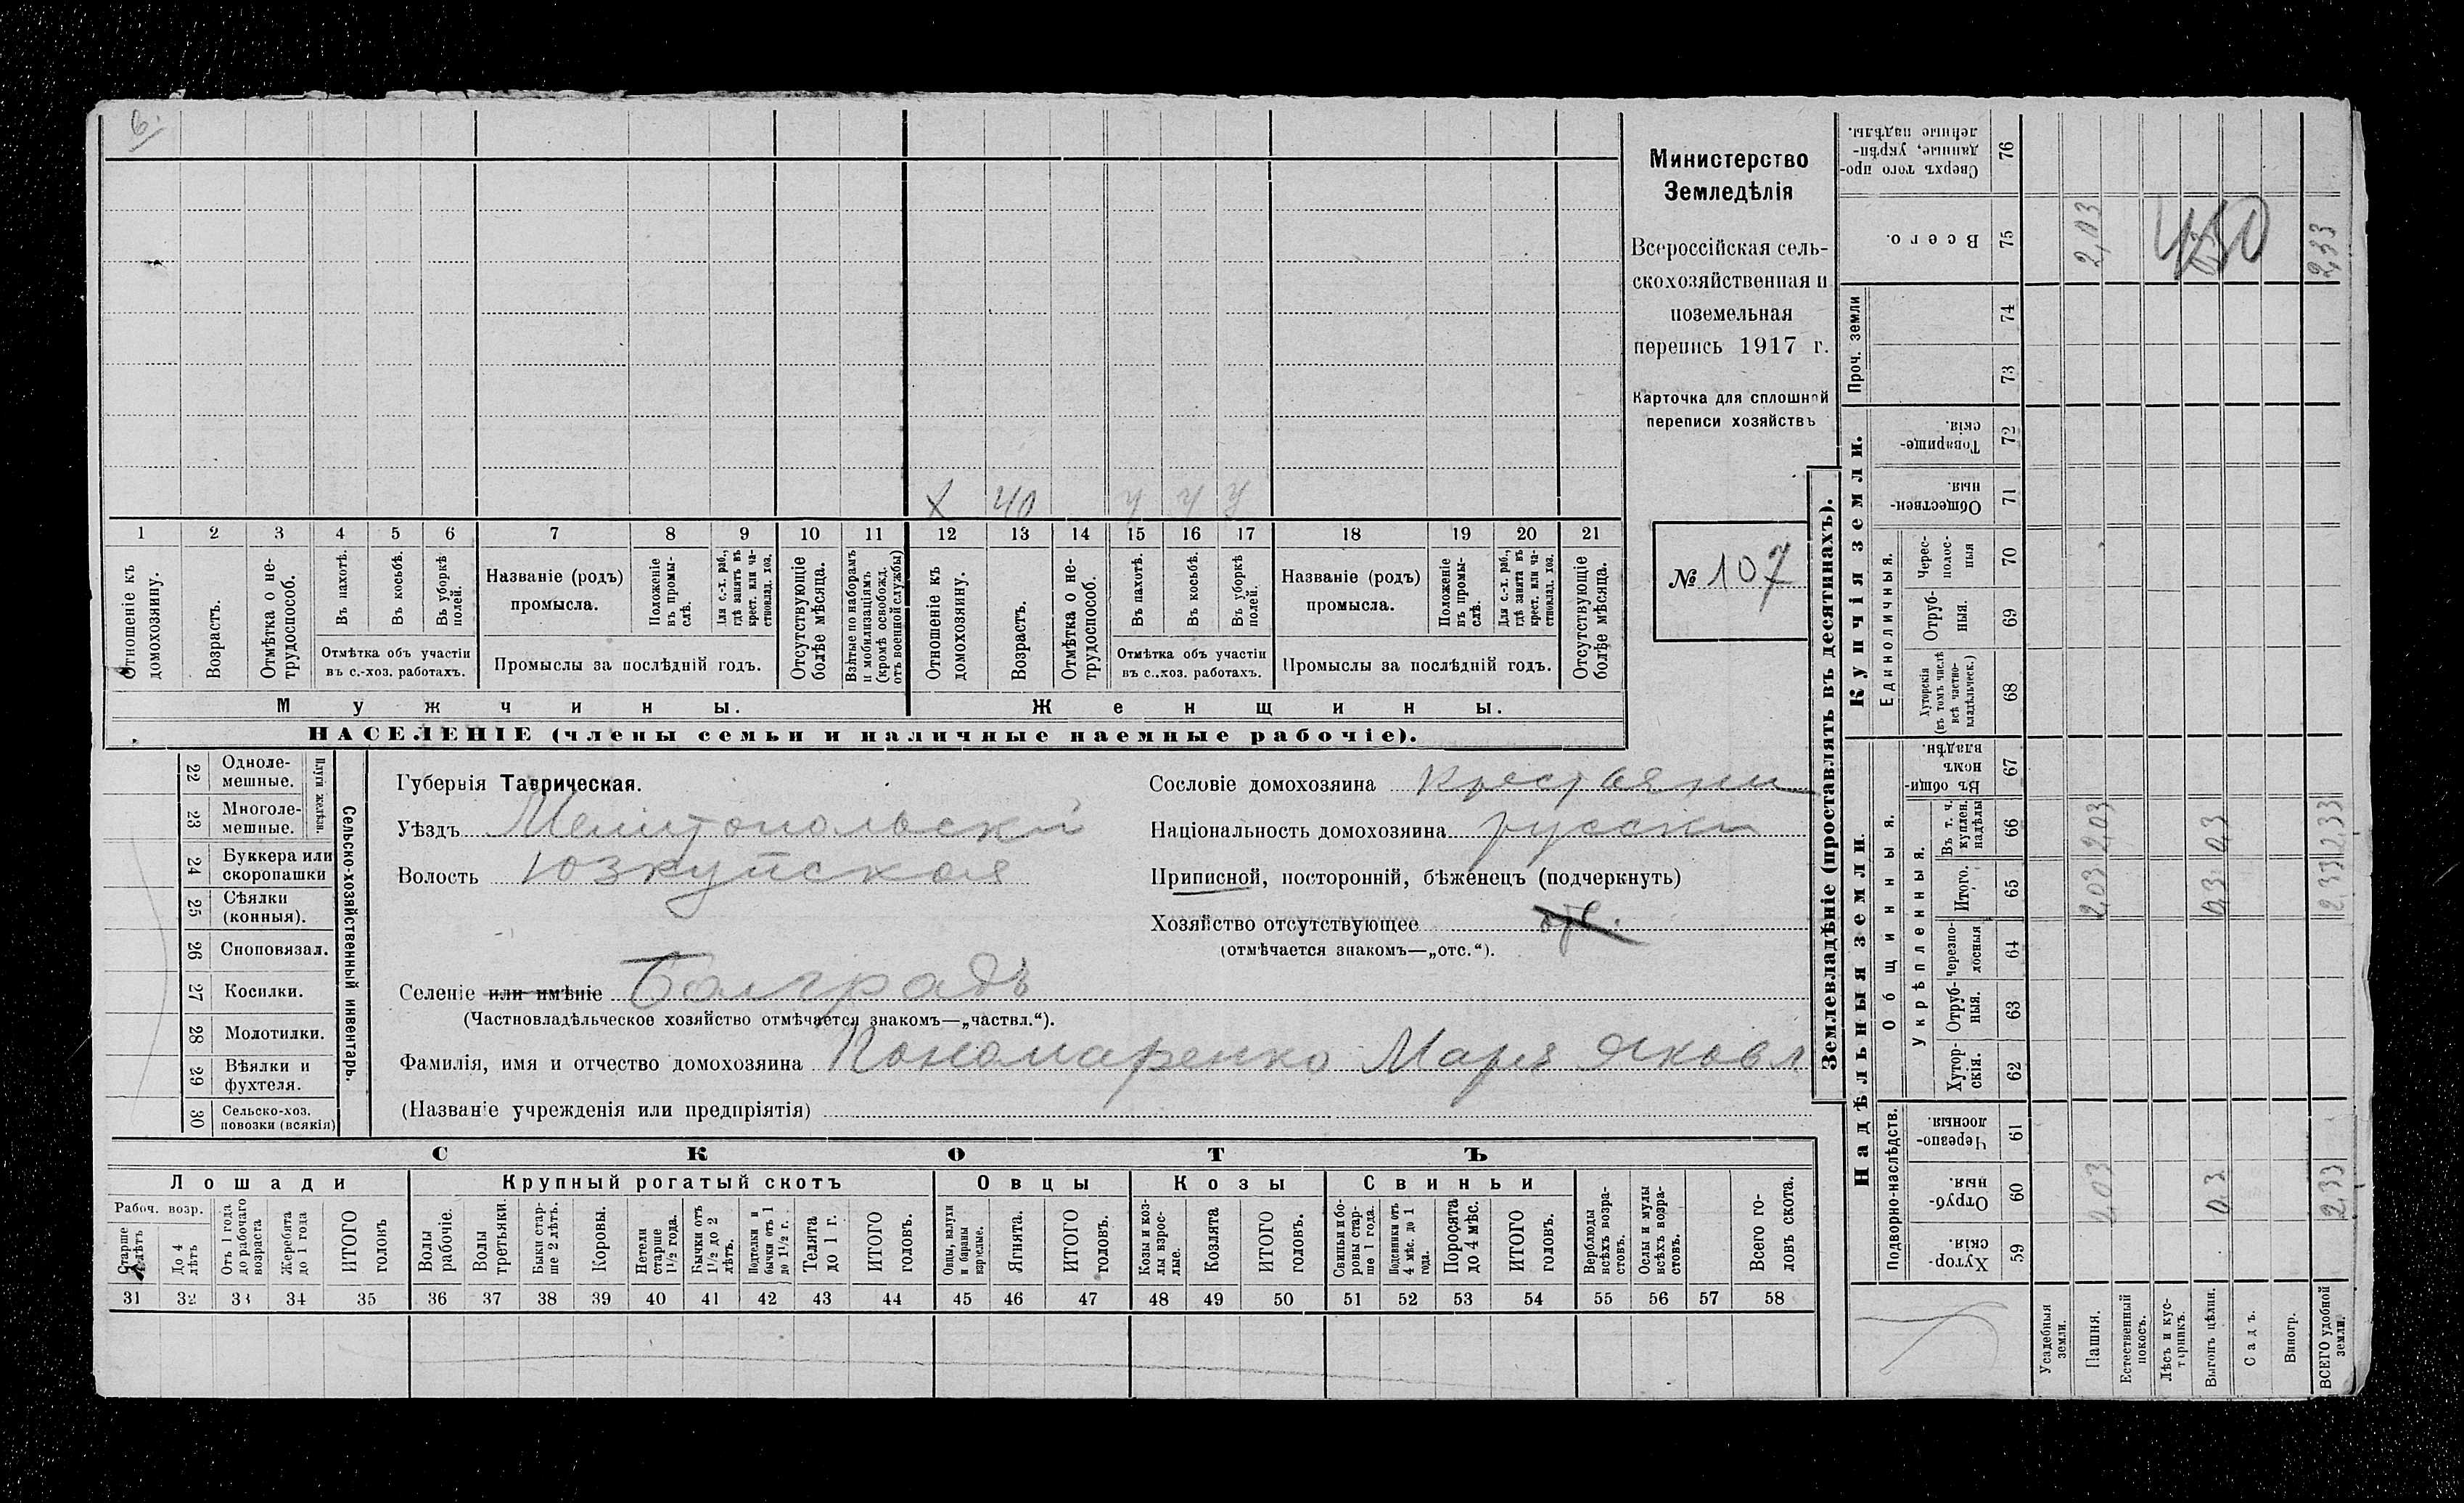 6.
Министерство
Земледѣлія
Всероссійская сель-
скохозяйственная и
поземельная
перепись 1917 г.
Карточка для сплошной
переписи хозяйствъ
№ 107
Х 40 у у у
1 2 3 4 5 6 7 8 9 10 11 12 13 14 15 16 17 18 19 20 21
Отношеніе къ домохозяину.
Возрастъ.
Отмѣтка о не-трудоспособ.
Въ пахотѣ.
Въ косьбѣ.
Въ уборкѣ полей.
Отмѣтка объ участіи
въ с.-хоз. работахъ.
Названіе (родъ)
промысла.
Положеніе въ промы-слѣ.
Для с.-х. раб., гдѣ занятъ въ крест. или ча-стновлад. хоз.
Промыслы за послѣдній годъ.
Отсутствующіе болѣе мѣсяца.
Взятые по наборамъ и мобилизаціямъ (кромѣ освобожд. отъ военной службы)
Отношеніе къ домохозяину.
Возрастъ.
Отмѣтка о не-трудоспособ.
Въ пахотѣ.
Въ косьбѣ.
Въ уборкѣ полей.
Отмѣтка объ участіи
въ с.-хоз. работахъ.
Названіе (родъ)
промысла.
Положеніе въ промы-слѣ.
Для с.-х. раб., гдѣ занята въ крест. или ча-стновлад. хоз.
Промыслы за послѣдній годъ.
Отсутствующіе болѣе мѣсяца.
Мужчины.
Женщины.
НАСЕЛЕНІЕ (члены семьи и наличные наемные рабочіе).
22 Одноле-мешные.
23 Многоле-мешные.
Плуги желѣзн.
24 Буккера или скоропашки
25 Сѣялки (конныя).
26 Сноповязал.
27 Косилки.
28 Молотилки.
29 Вѣялки и фухтеля.
30 Сельско-хоз. повозки (всякія)
Сельско-хозяйственный инвентарь.
Губернія Таврическая.
Уѣздъ Мелитопольскй
Волость Юзкуйская
Селеніе или имѣніе Болградъ
(Частновладѣльческое хозяйство отмѣчается знакомъ—„частвл.“).
Фамилія, имя и отчество домохозяина Пономаренко Марія Яковл
(Названіе учрежденія или предпріятія)
Сословіе домохозяина крестьянин
Національность домохозяина русски
Приписной, посторонній, бѣженецъ (подчеркнуть)
Хозяйство отсутствующее
(отмѣчается знакомъ—„отс.“).
СКОТЪ
Лошади
Крупный рогатый скотъ
Овцы
Козы
Свиньи
Рабоч. возр.
Старше 4 лѣтъ
До 4 лѣтъ
Отъ 1 года до рабочаго возраста
Жеребята до 1 года
ИТОГО головъ
Волы рабочіе.
Волы третьяки.
Быки стар-ше 2 лѣтъ.
Коровы.
Нетели старше 1½ года.
Бычки отъ 1½ до 2 лѣтъ.
Подтелки и бычки отъ 1 до 1½ г.
Телята до 1 г.
ИТОГО головъ.
Овцы, валухи и бараны взрослые.
Ягнята.
ИТОГО головъ.
Козы и коз-лы взрос-лые.
Козлята
ИТОГО головъ.
Свиньи и бо-ровы стар-ше 1 года.
Подсвинки отъ 4 мѣс. до 1 года.
Поросята до 4 мѣс.
ИТОГО головъ.
Верблюды всѣхъ возра-стовъ.
Ослы и мулы всѣхъ возра-стовъ.
Всего го-ловъ скота.
31 32 33 34 35 36 37 38 39 40 41 42 43 44 45 46 47 48 49 50 51 52 53 54 55 56 57 58
Землевладѣніе (проставлять въ десятинахъ).
Надѣльныя земли.
Купчія земли.
Проч. земли
Подворно-наслѣдств.
Общинныя.
Укрѣпленныя.
Единоличныя.
Хутор-скія. 59
Отруб-ныя. 60 2,03 0,3 2,33
Черезпо-лосныя 61
Хутор-скія. 62
Отруб-ныя. 63
Черезпо-лосныя 64
Итого. 65 2,03 0,3 2,33
Въ т. ч. куплен. надѣлы 66 2,03 0,3 2,33
Въ общи-номъ владѣн. 67
Хуторскія (въ томъ числѣ всѣ частно-владѣльческ.) 68
Отруб-ныя. 69
Черес-полос-ныя 70
Обществен-ныя. 71
Товарище-скія. 72
73
74
Всего. 75 2,03 2,33
450
Сверхъ того про-данные, укрѣп-ленные надѣлы. 76
Усадебныя земли.
Пашня.
Естественный покосъ.
Лѣсъ и кус-тарникъ.
Выгонъ цѣлин.
Садъ.
Виногр.
ВСЕГО удобной земли.